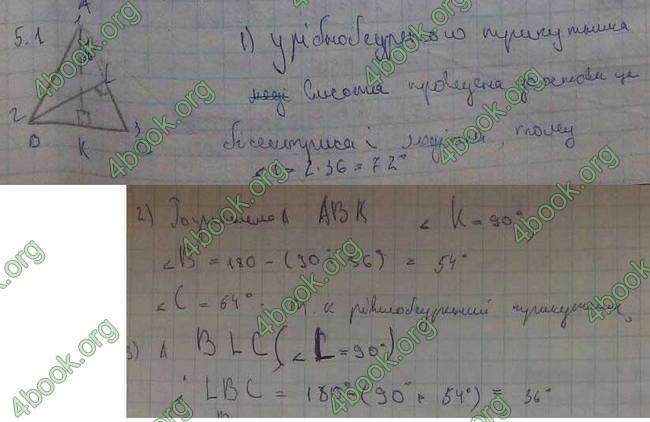 5.1
A
1
L
2
B
K
3
1) у рівнобедреного трикутника
висота проведена до основи це
бісектриса і медіана, тому
< 1 = 2·36 = 72°
2) Розглянемо Δ ABK < K = 90°
< B = 180 - (90° + 36°) = 54°
< C = 64° т.к рівнобедрений трикутник
3) Δ BLC (< L = 90°)
< LBC = 180° - (90° + 54°) = 36°
4book.org